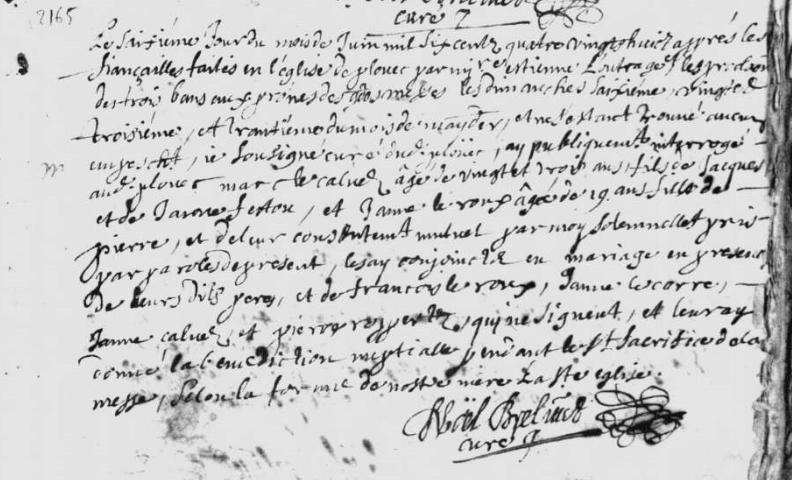 2165
curé
Le saixiéme Jour du mois de Juin mil six centz quatre vingts huict apprés les
fiançailles faites en l'églize de plouec par mire estienne les
de trois bans aux prones des les dimanches saixième, vingt et
troisiéme, et trantiéme du mois de may der, et ne s'estant trouvé aucun
, ie soussigné curé dud plouec, ay publiquemt interrogé
aud plouec marc le calvez âgé de vingt et trois ans fils de Jacques
et de Janne , et Janne le roux âgée de 19 ans fille de
pierre, et de leur mutuel par moy solemnellet pris
par parolles de present, les ay conjoincts en mariage en presence
de leurs dits peres, et de francois le roux, Janne le corre,
Janne calvez, et pierre , qui ne signent, et leur ay
donné la benediction nuptialle pendant le st sacrifice de la
messe, selon la forme de nostre mere La ste eglise.
Noël
curé